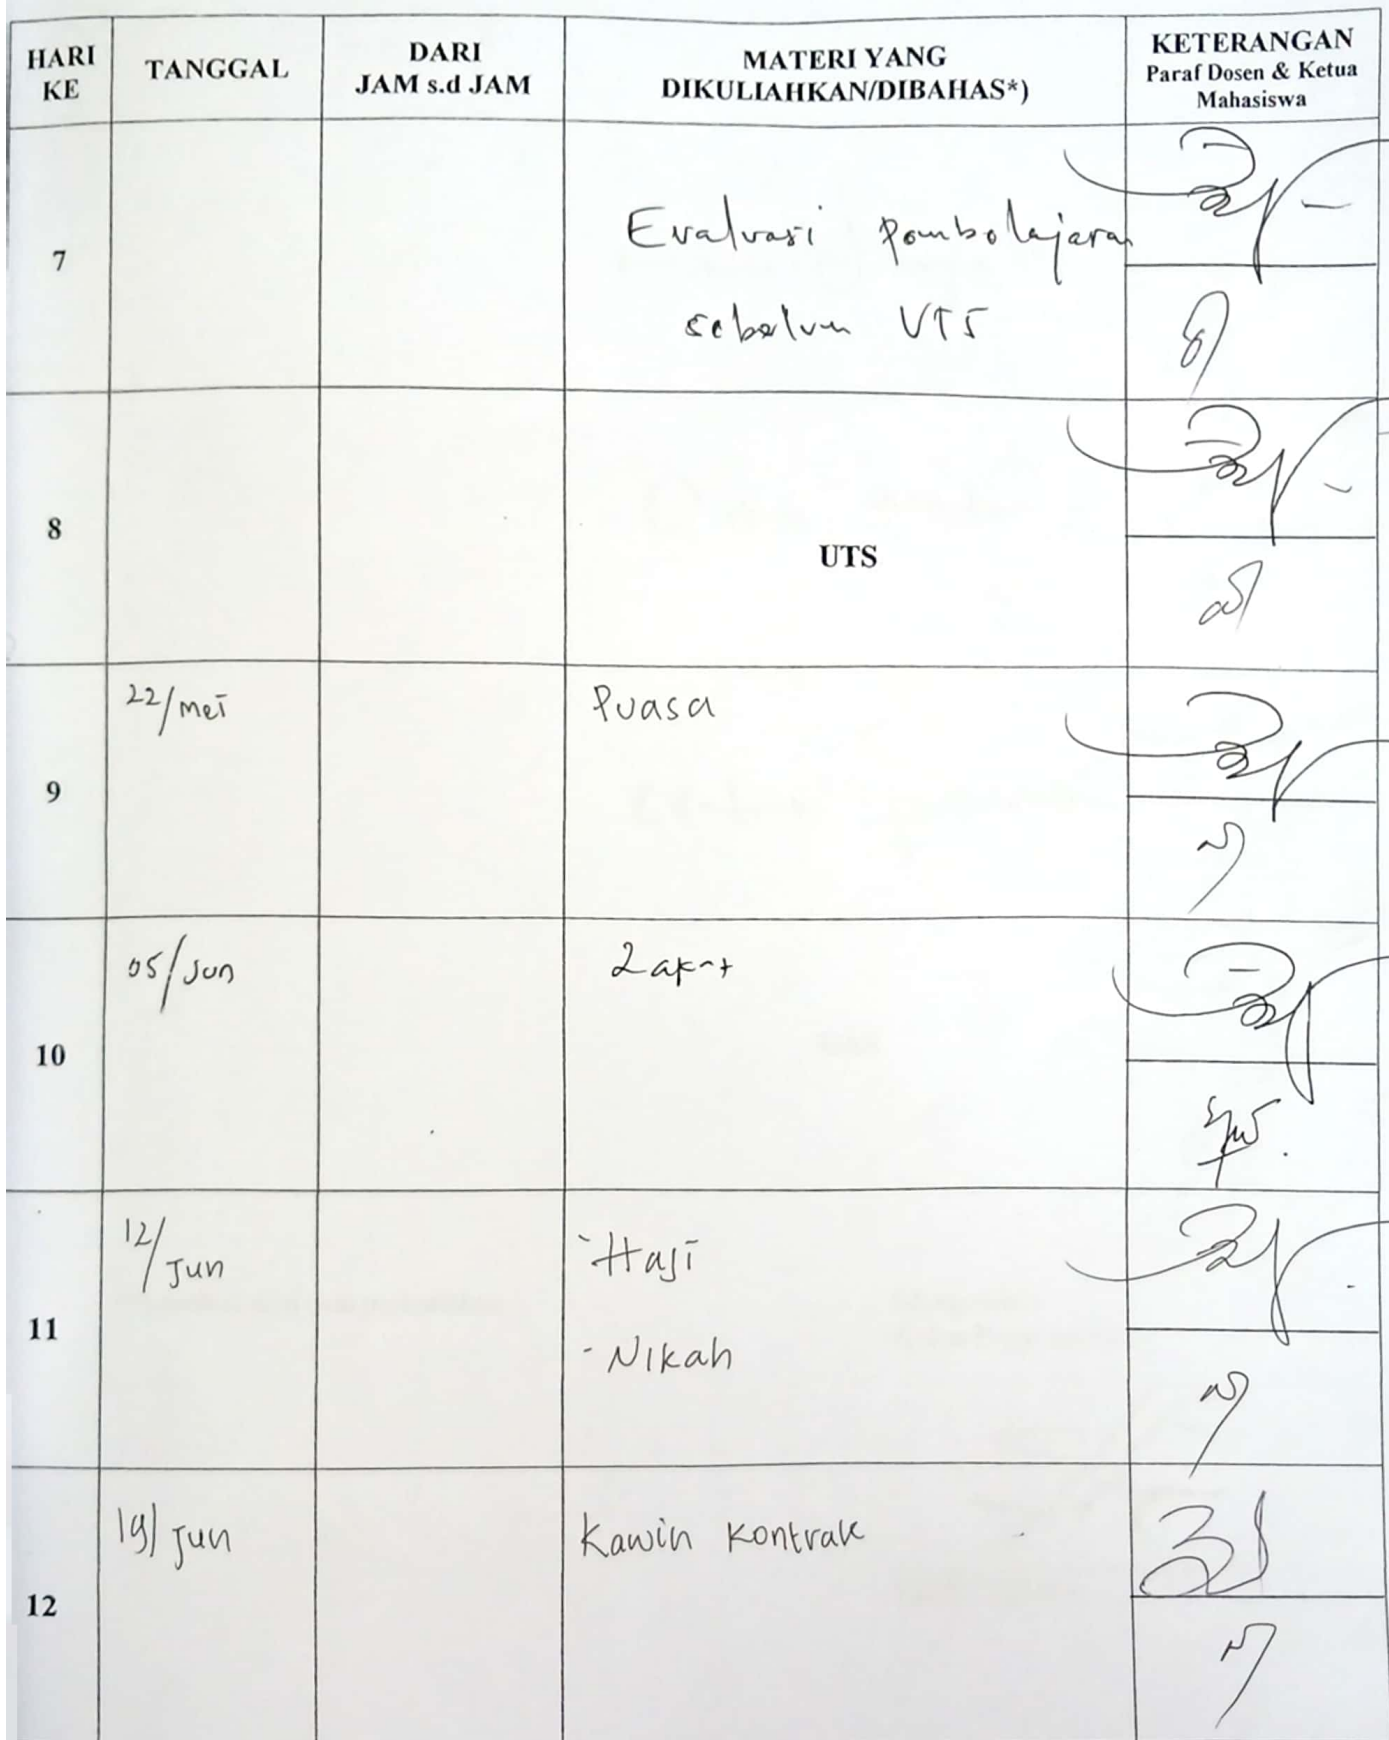 HARI KE
TANGGAL
DARI
JAM s.d JAM
MATERI YANG
DIKULIAHKAN/DIBAHAS*)
KETERANGAN
Paraf Dosen & Ketua
Mahasiswa
7
Evaluasi pembelajaran
sebelum UTS
8
UTS
9
22/Mei
Puasa
10
05/Jun
Zakat
11
12/Jun
- Haji
- Nikah
12
19/Jun
Kawin Kontrak